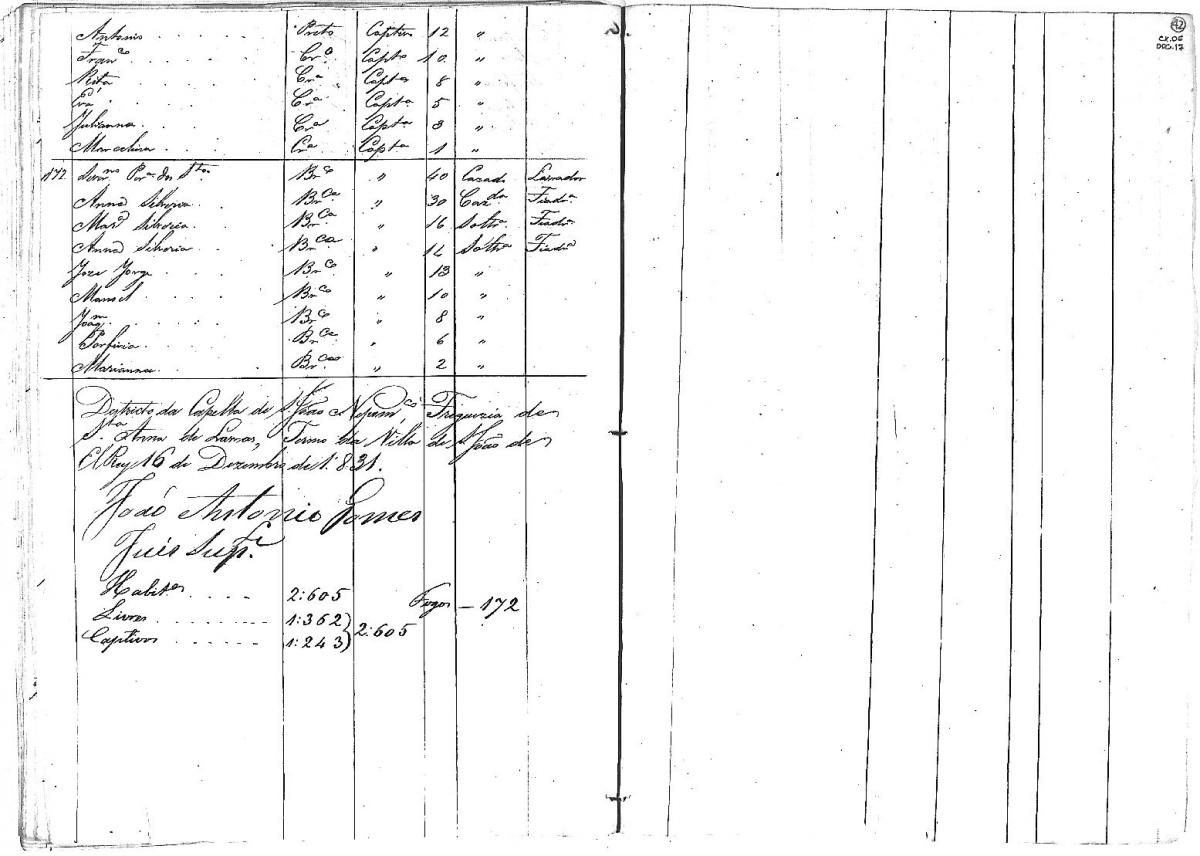 Antonio . . . . . Preto Captivo 12 "
Franco . . . . . Cro. Capto 10 "
Rita . . . . . Cra Capta 8 "
Eva . . . . . Cra Capta 5 "
Julianna . . . . Cra Capta 3 "
Marcelina . . . Ca Capta 1 "
172 Pera dos Stos Brco " 40 Cazado Lavrador
Anna Silveria . . Brca " 30 Cazda Fiadra
Mara Silveria . . Brca " 16 Soltra Fiadra
Anna Silveria . . Brca " 14 Soltra Fiadra
Joze Jorge . . . Brco " 13 "
Manoel . . . . Brco " 10 "
Joaqm . . . . Brco " 8 "
Porfiria . . . . Brca " 6 "
Marianna . . . . Brca " 2 "
Districto da Capella de S. João Nepomco, Freguezia de
Sta Anna de Lavras, Termo da Villa de S. João de
El Rey 16 de Dezembro de 1831.
João Antonio Gomes
Juis Supe.
Habites . . . . 2:605 Fogos — 172
Livres . . . . . . 1:362)
Captivos . . . . . 1:243) 2:605
42
CX.06
DOC.17